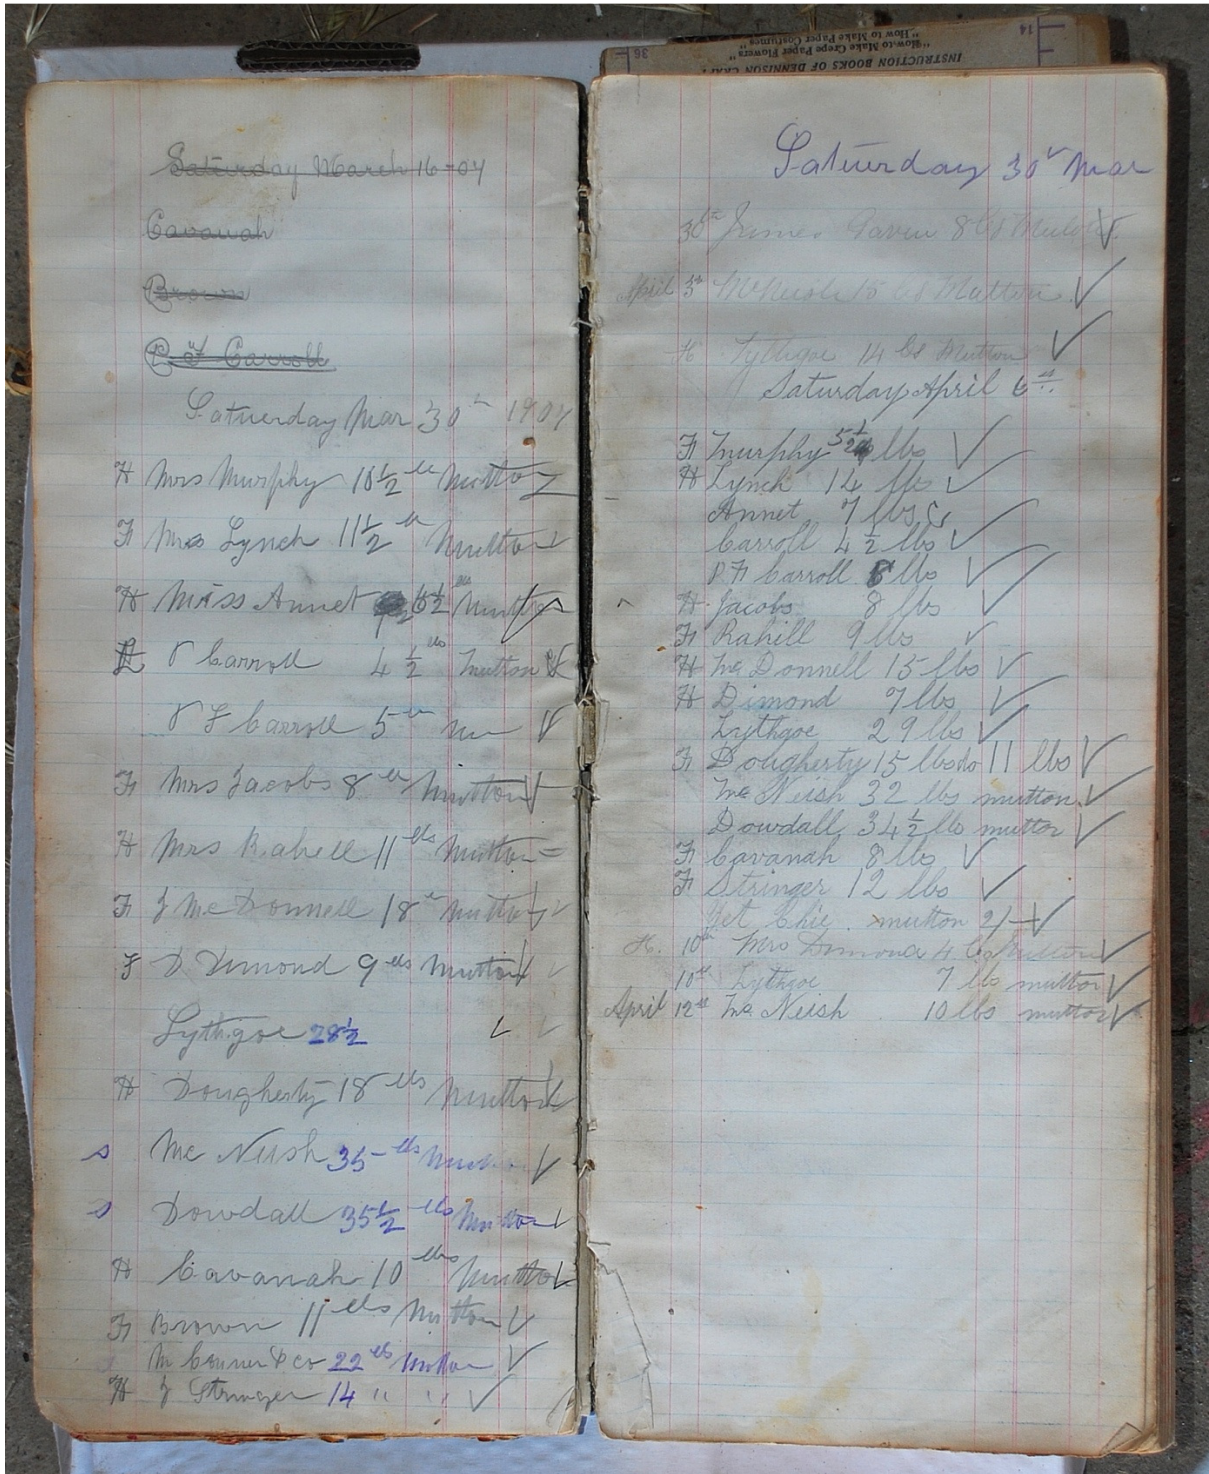 Saturday March 16-07
Cavanah
Brown
P F Carroll
Saturday Mar 30th 1907
H Mrs Murphy 10½ lbs Mutton
F Mrs Lynch 11½ lb Mutton
H Miss Annet 6½ lbs Mutton
P Carroll 4½ lbs Mutton
P F Carroll 5 lb
F Mrs Jacobs 8 lb Mutton
H Mrs Rahill 11 lbs Mutton
F J McDonnell 18 lb Mutton
F D Dimond 9 lbs Mutton
Lythgoe 28½
H Dougherty 18 lbs Mutton
s Mc Neish 35 - lbs Mutton
s Dowdall 35½ lbs Mutton
H Cavanah 10 lbs Mutton
F Brown 11 lbs Mutton
M Conner & co 22 lbs Mutton
H J Stringer 14 " "
INSTRUCTION BOOKS OF DENNISON
"How to Make Crepe Paper Flowers"
"How to Make Paper Costumes"
36
14
Saturday 30th Mar
30th James Gavin 8 lbs
April 3rd McNeish 15 lbs Mutton
H Lythgoe 14 lbs Mutton
Saturday April 6th
F Murphy 5½ lbs
H Lynch 14 lbs
Annet 7 lbs
Carroll 4½ lbs
P F Carroll 8 lbs
H Jacobs 8 lbs
F Rahill 9 lbs
H Mc Donnell 15 lbs
H Dimond 7 lbs
Lythgoe 29 lbs
F Dougherty 15 lbs do 11 lbs
Mc Neish 32 lbs mutton
Dowdall 34½ lbs mutton
F Cavanah 8 lbs
F Stringer 12 lbs
mutton 2/-
H. 10th Mrs Dimond 4 lbs Mutton
10th Lythgoe 7 lbs mutton
April 12th Mc Neish 10 lbs mutton